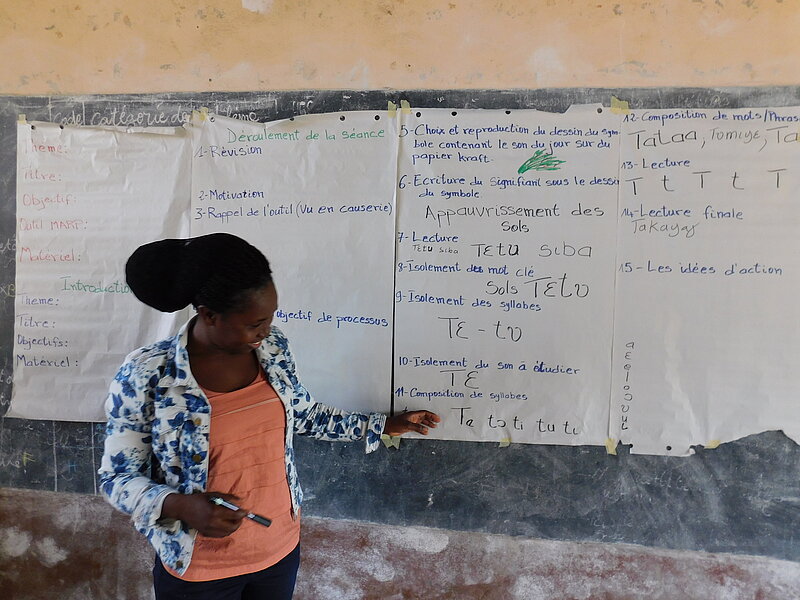 Code/catégorie de
Thème:
Titre:
Objectif:
Outil MARP:
Matériel:
Introduction
Theme:
Titre:
Objectifs:
Matériel:
Déroulement de la séance
1-Révision
2-Motivation
3-Rappel de l'outil (Vu en causerie)
objectif de processus
5-Choix et reproduction du dessin du sym-
bole contenant le son du jour sur du
papier kraft.
6-Ecriture du Signifiant sous le dessin
du symbole.
Appauvrissement des
sols
7-Lecture
Tɛtʋ siba
Tɛtʋ siba
8-Isolement des mot clé
Sols Tɛtʋ
9-Isolement des syllabes
Tɛ - tʋ
10-Isolement du son à étudier
Tɛ
11-Composition de syllabes
Ta tɔ ti tu tɩ
12-Composition de mots/Phras
Tataa, Tomiyɛ, Ta
13-Lecture
T t T t T
14-Lecture finale
Takayaɣ
15-Les idées d'action
a
ɛ
e
ɩ
o
ɔ
ʋ
u